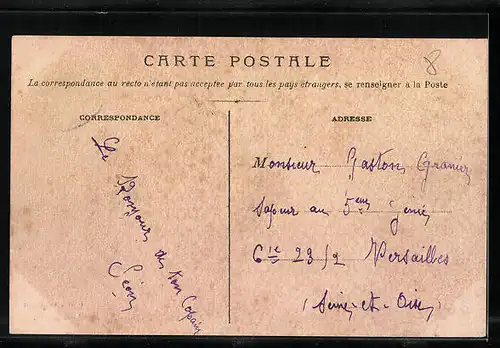 8
CARTE POSTALE
La correspondance au recto n'étant pas acceptée par tous les pays étrangers, se renseigner à la Poste
CORRESPONDANCE
Le Bonjour du ton Copain
ADRESSE
Monsieur Gaston
Sapeur au 5eme génie
Cie 23/2 Versailles
(Seine-et-Oise)